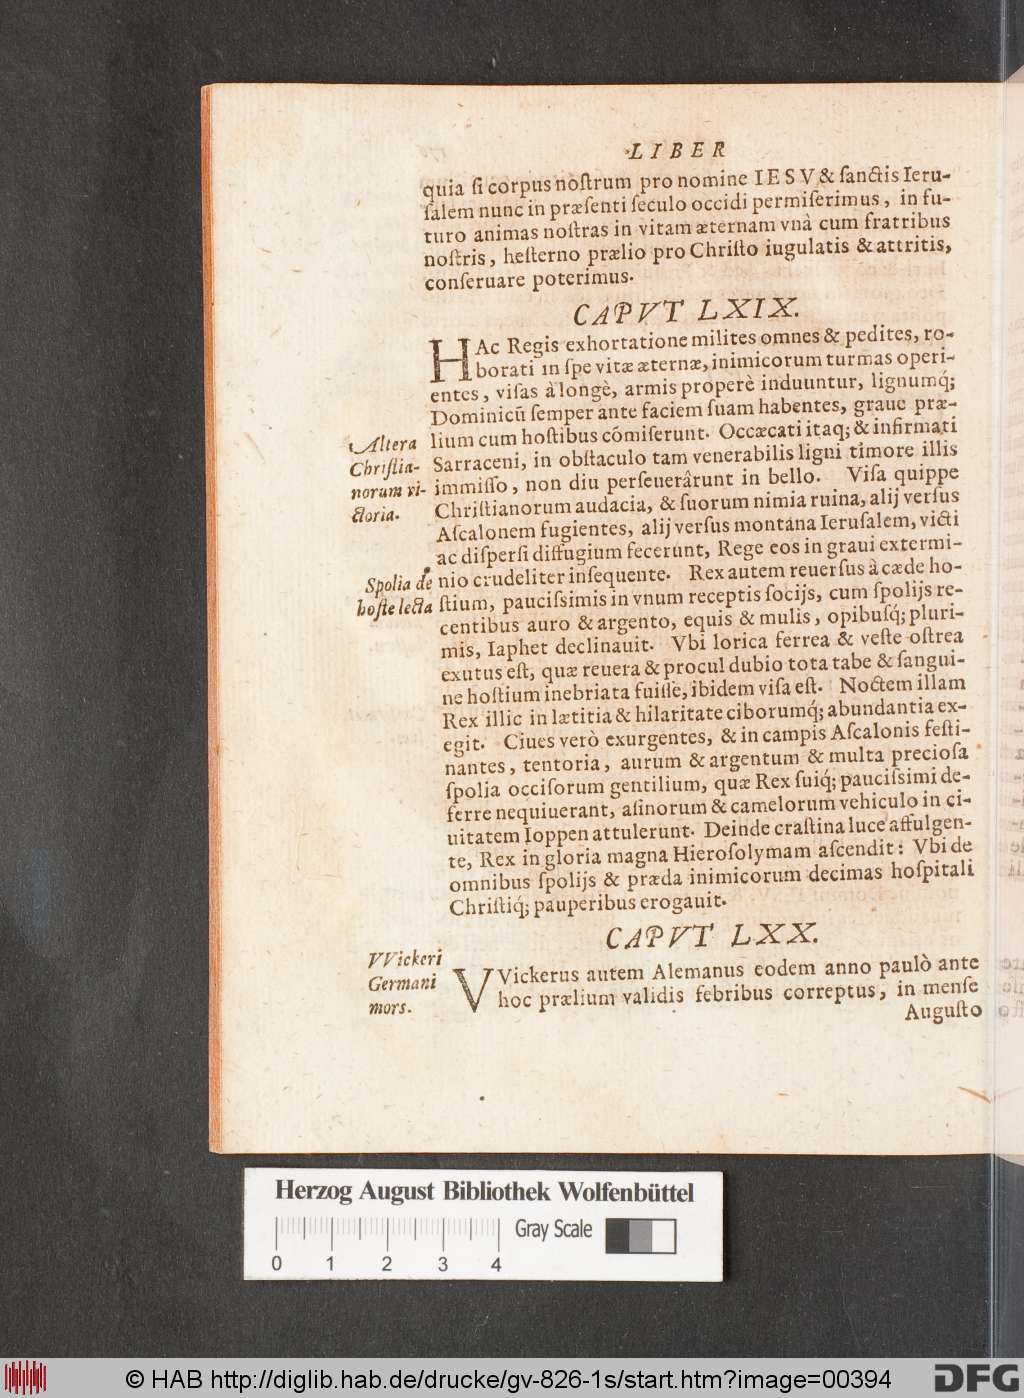 LIBER
quia ſi corpus noſtrum pro nomine IESV & ſanctis Ieru-
ſalem nunc in præſenti ſeculo occidi permiſerimus, in fu-
turo animas noſtras in vitam æternam vnà cum fratribus
noſtris, heſterno prælio pro Chriſto iugulatis & attritis,
conſeruare poterimus.
CAPVT LXIX.
HAc Regis exhortatione milites omnes & pedites, ro-
borati in ſpe vitæ æternæ, inimicorum turmas operi-
entes, viſas à longè, armis properè induuntur, lignumq́;
Dominicū ſemper ante faciem ſuam habentes, graue præ-
Altera
Chriſtia-
norum vi-
ctoria.
lium cum hoſtibus cōmiſerunt. Occæcati itaq; & infirmati
Sarraceni, in obſtaculo tam venerabilis ligni timore illis
immiſſo, non diu perſeuerârunt in bello. Viſa quippe
Chriſtianorum audacia, & ſuorum nimia ruina, alij verſus
Aſcalonem fugientes, alij verſus montana Ieruſalem, victi
ac diſperſi diffugium fecerunt, Rege eos in graui extermi-
Spolia de
hoſte lecta
nio crudeliter inſequente. Rex autem reuerſus à cæde ho-
ſtium, pauciſsimis in vnum receptis ſocijs, cum ſpolijs re-
centibus auro & argento, equis & mulis, opibuſq́; pluri-
mis, Iaphet declinauit. Vbi lorica ferrea & veſte oſtrea
exutus eſt, quæ reuera & procul dubio tota tabe & ſangui-
ne hoſtium inebriata fuiſſe, ibidem viſa eſt. Noctem illam
Rex illic in lætitia & hilaritate ciborumq́; abundantia ex-
egit. Ciues verò exurgentes, & in campis Aſcalonis feſti-
nantes, tentoria, aurum & argentum & multa precioſa
ſpolia occiſorum gentilium, quæ Rex ſuiq́; pauciſsimi de-
ferre nequiuerant, aſinorum & camelorum vehiculo in ci-
uitatem Ioppen attulerunt. Deinde craſtina luce affulgen-
te, Rex in gloria magna Hieroſolymam aſcendit: Vbi de
omnibus ſpolijs & præda inimicorum decimas hoſpitali
Chriſtiq́; pauperibus erogauit.
CAPVT LXX.
VVickeri
Germani
mors.
VVickerus autem Alemanus eodem anno paulò ante
hoc prælium validis febribus correptus, in menſe
Auguſto
Herzog August Bibliothek Wolfenbüttel
Gray Scale
0 1 2 3 4
© HAB http://diglib.hab.de/drucke/gv-826-1s/start.htm?image=00394
DFG